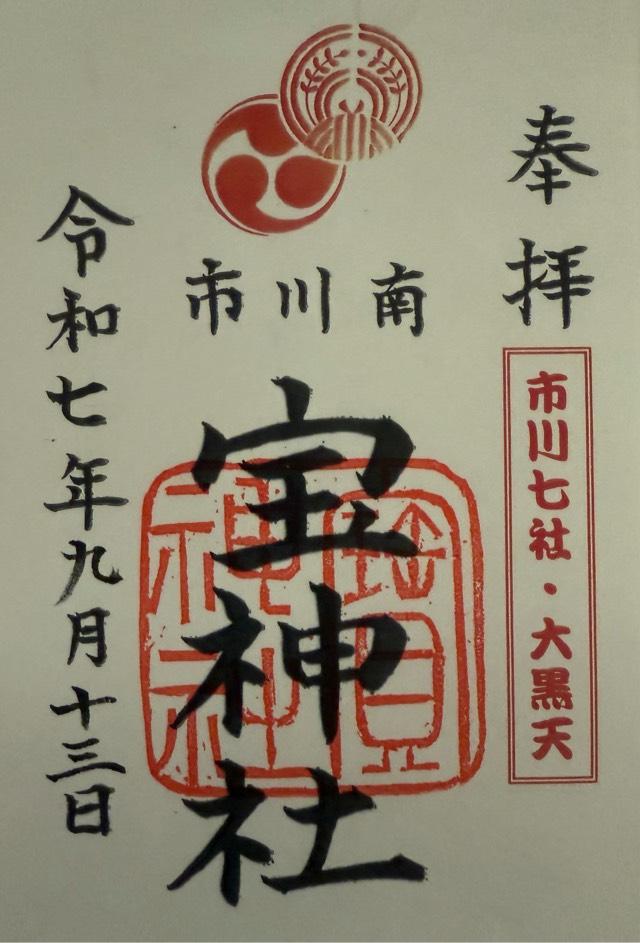 奉拝
市川七社・大黒天
市川南
宝神社
寳神社
令和七年九月十三日